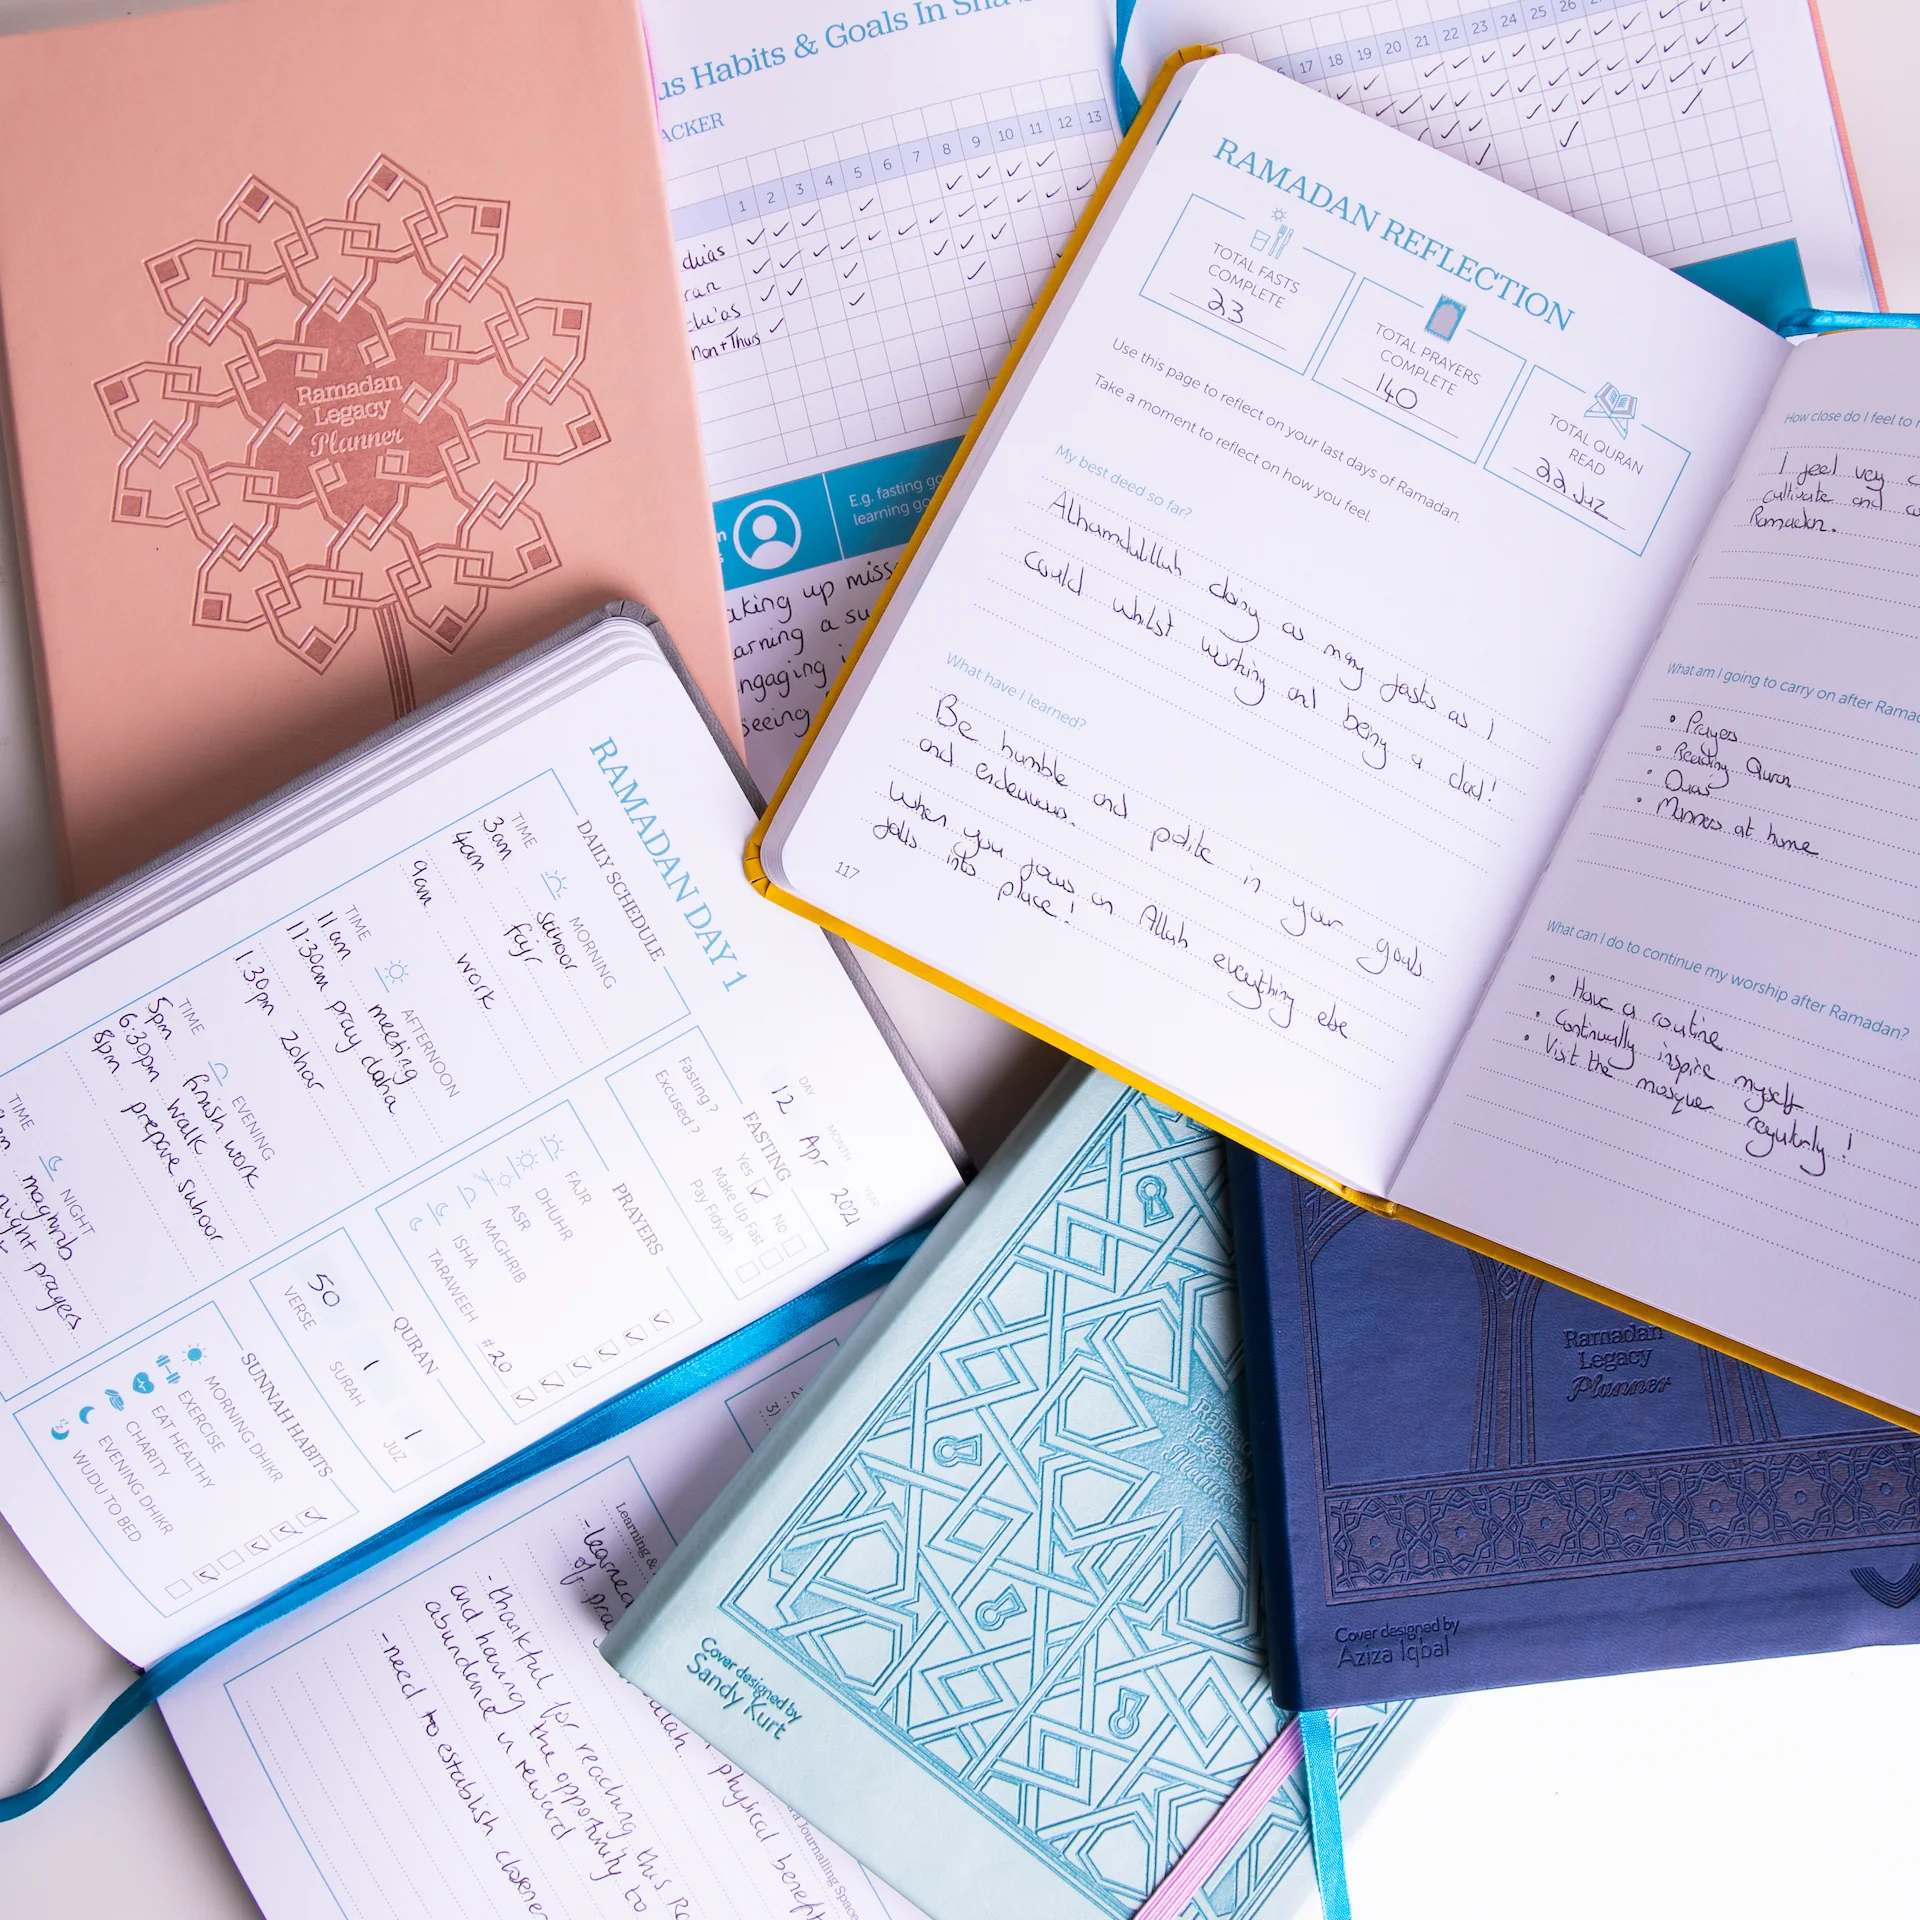 Ramadan
Legacy
Planner
Habits & Goals In
1 2 3 4 5 6 7 8 9 10 11 12 13
17 18 19 20 21 22 23 24 25 26
Mon + Thurs
E.g. fasting
learning
up
a
RAMADAN REFLECTION
TOTAL FASTS
COMPLETE
23
TOTAL PRAYERS
COMPLETE
140
TOTAL QURAN
READ
22 Juz
Use this page to reflect on your last days of Ramadan.
Take a moment to reflect on how you feel.
My best deed so far?
Alhamdulillah doing as many fasts as I
could whilst working and being a dad!
What have I learned?
Be humble and polite in your goals
and endeavours.
When you focus on Allah everything else
falls into place!
117
How close do I feel to
I feel very
cultivate and
Ramadan.
What am I going to carry on after
• Prayers
• Reading Quran
• Duas
• Manners at home
What can I do to continue my worship after Ramadan?
• Have a routine
• Continually inspire myself
• Visit the mosque regularly!
RAMADAN DAY 1
12 Apr 2021
DAY MONTH YEAR
DAILY SCHEDULE
TIME MORNING
3am suhoor
4am fajr
9am work
TIME AFTERNOON
11am meeting
11:30am pray duha
1:30pm zohar
TIME EVENING
5pm finish work
6:30pm walk
8pm prepare suhoor
TIME NIGHT
maghrib
night prayers
FASTING
Fasting? Yes No
Excused? Make Up Fast
Pay Fidyah
PRAYERS
FAJR
DHUHR
ASR
MAGHRIB
ISHA
TARAWEEH #20
QURAN
50 1 1
VERSE SURAH JUZ
SUNNAH HABITS
MORNING DHIKR
EXERCISE
EAT HEALTHY
CHARITY
EVENING DHIKR
WUDU TO BED
3)
Learning &
Journalling Space
-learned
of
physical
-thankful for reaching this
and having the opportunity to
abundance in reward
-need to establish closer
Legacy
Cover designed by
Sandy Kurt
Ramadan
Legacy
Planner
Cover designed by
Aziza Iqbal